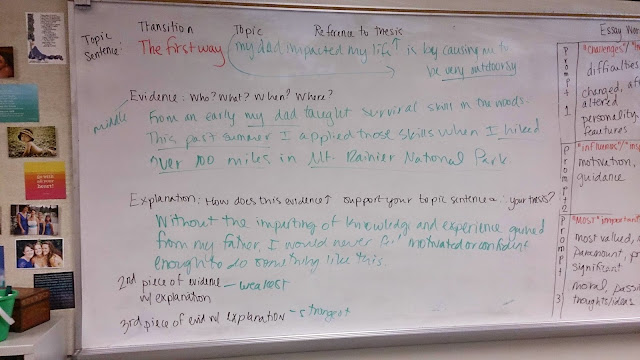 Transition Topic Reference to thesis
Topic Sentence: The first way my dad impacted my life ↑ is by causing me to
be very outdoorsy
Evidence: Who? What? When? Where?
middle
From an early my dad taught survival skill in the woods.
This past summer I applied those skills when I hiked
over 100 miles in Mt. Rainier National Park.
Explanation: How does this evidence ↑ support your topic sentence + your thesis?
Without the imparting of knowledge and experience gained
from my father, I would never motivated or confident
enough to do something like this.
2nd piece of evidence – weakest
w/ explanation
3rd piece of evid w/ explanation – strongest
Essay Wor
Prompt 1
"challenges"/"
difficulties
changed, aff
altered
personality,
features
Prompt 2
"influence"/"insp
motivation,
guidance
Prompt 3
"Most" important
most valued,
paramount, pr
significant
moral, passi
thoughts/ideas